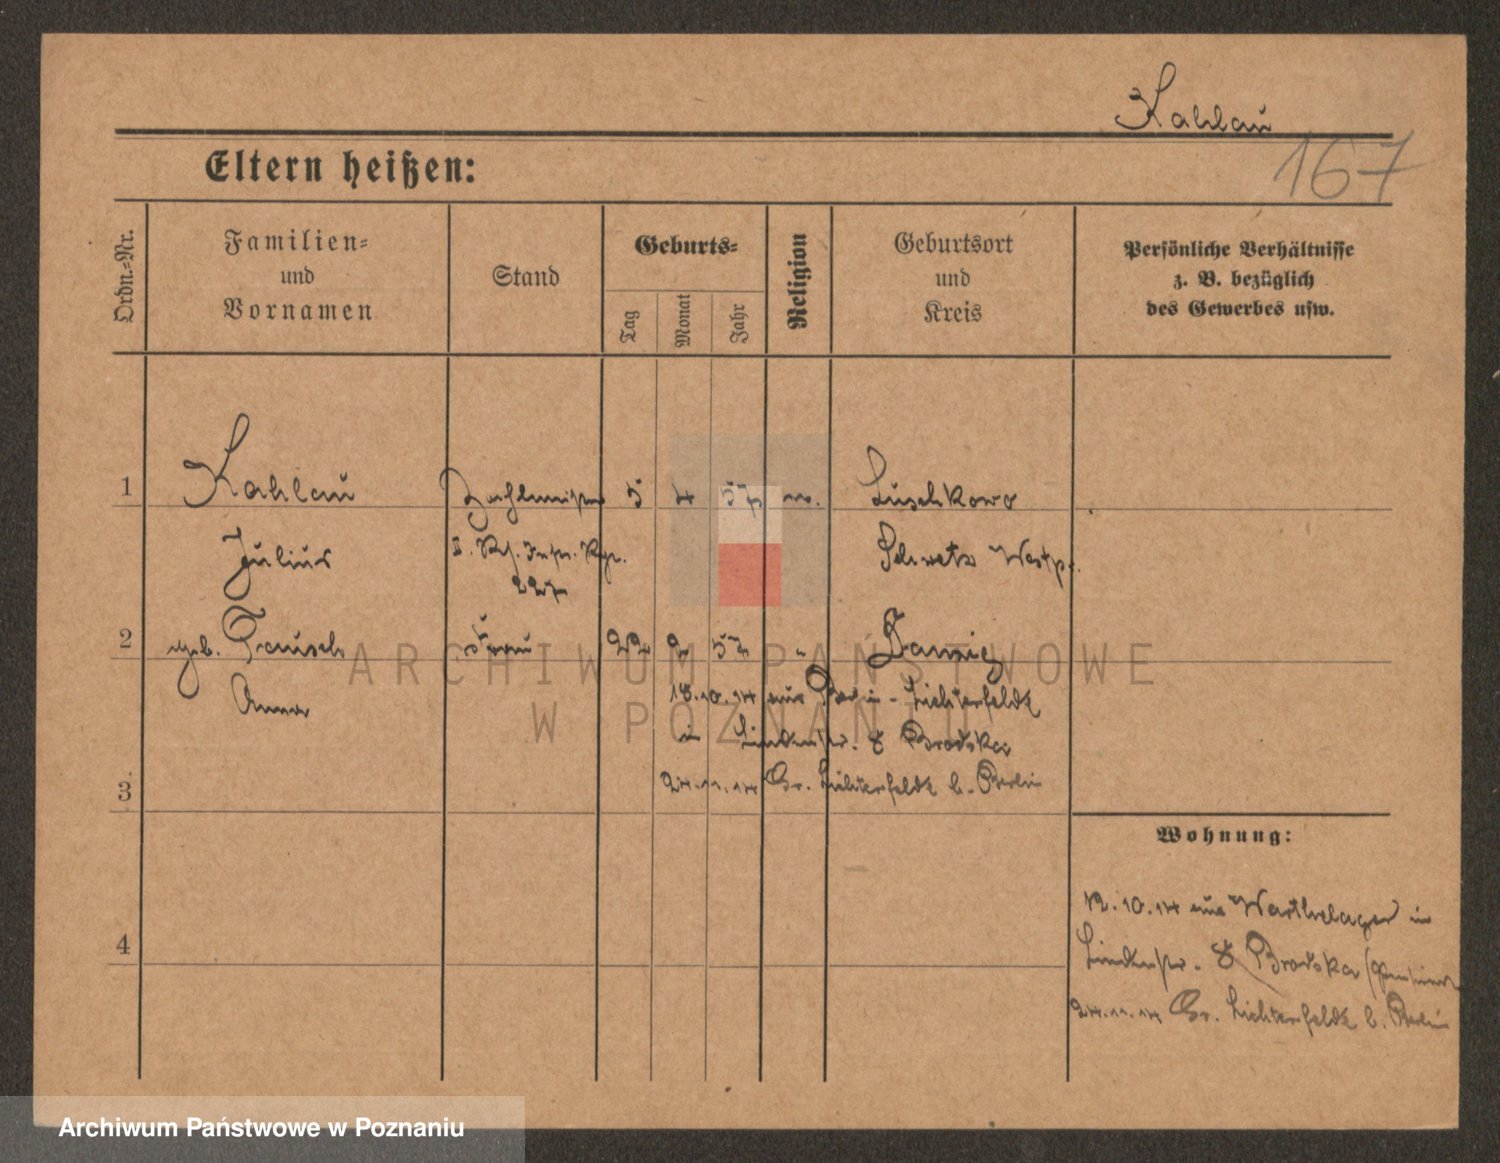 Kahlau
167
Eltern heißen:
Ordn.-Nr.
Familien-
und
Vornamen
Stand
Geburts-
Tag
Monat
Jahr
Religion
Geburtsort
und
Kreis
Persönliche Verhältnisse
z. B. bezüglich
des Gewerbes usw.
1 Kahlau Zahlmeister 5 4 57 ev. Luschkowo
Julius II. Inftr. Rgt. Schwetz Westpr.
227
2 geb. Frau 22 2 57 " Danzig
Anna 18.10.14 aus Berlin-Lichterfelde
in Lindenstr. 8
3 24.11.14 Gr. Lichterfelde b. Berlin
4
Wohnung:
12.10.14 aus Warthelager in
Lindenstr. 8
24.11.14 Gr. Lichterfelde b. Berlin
ARCHIWUM PAŃSTWOWE
W POZNANIU
Archiwum Państwowe w Poznaniu